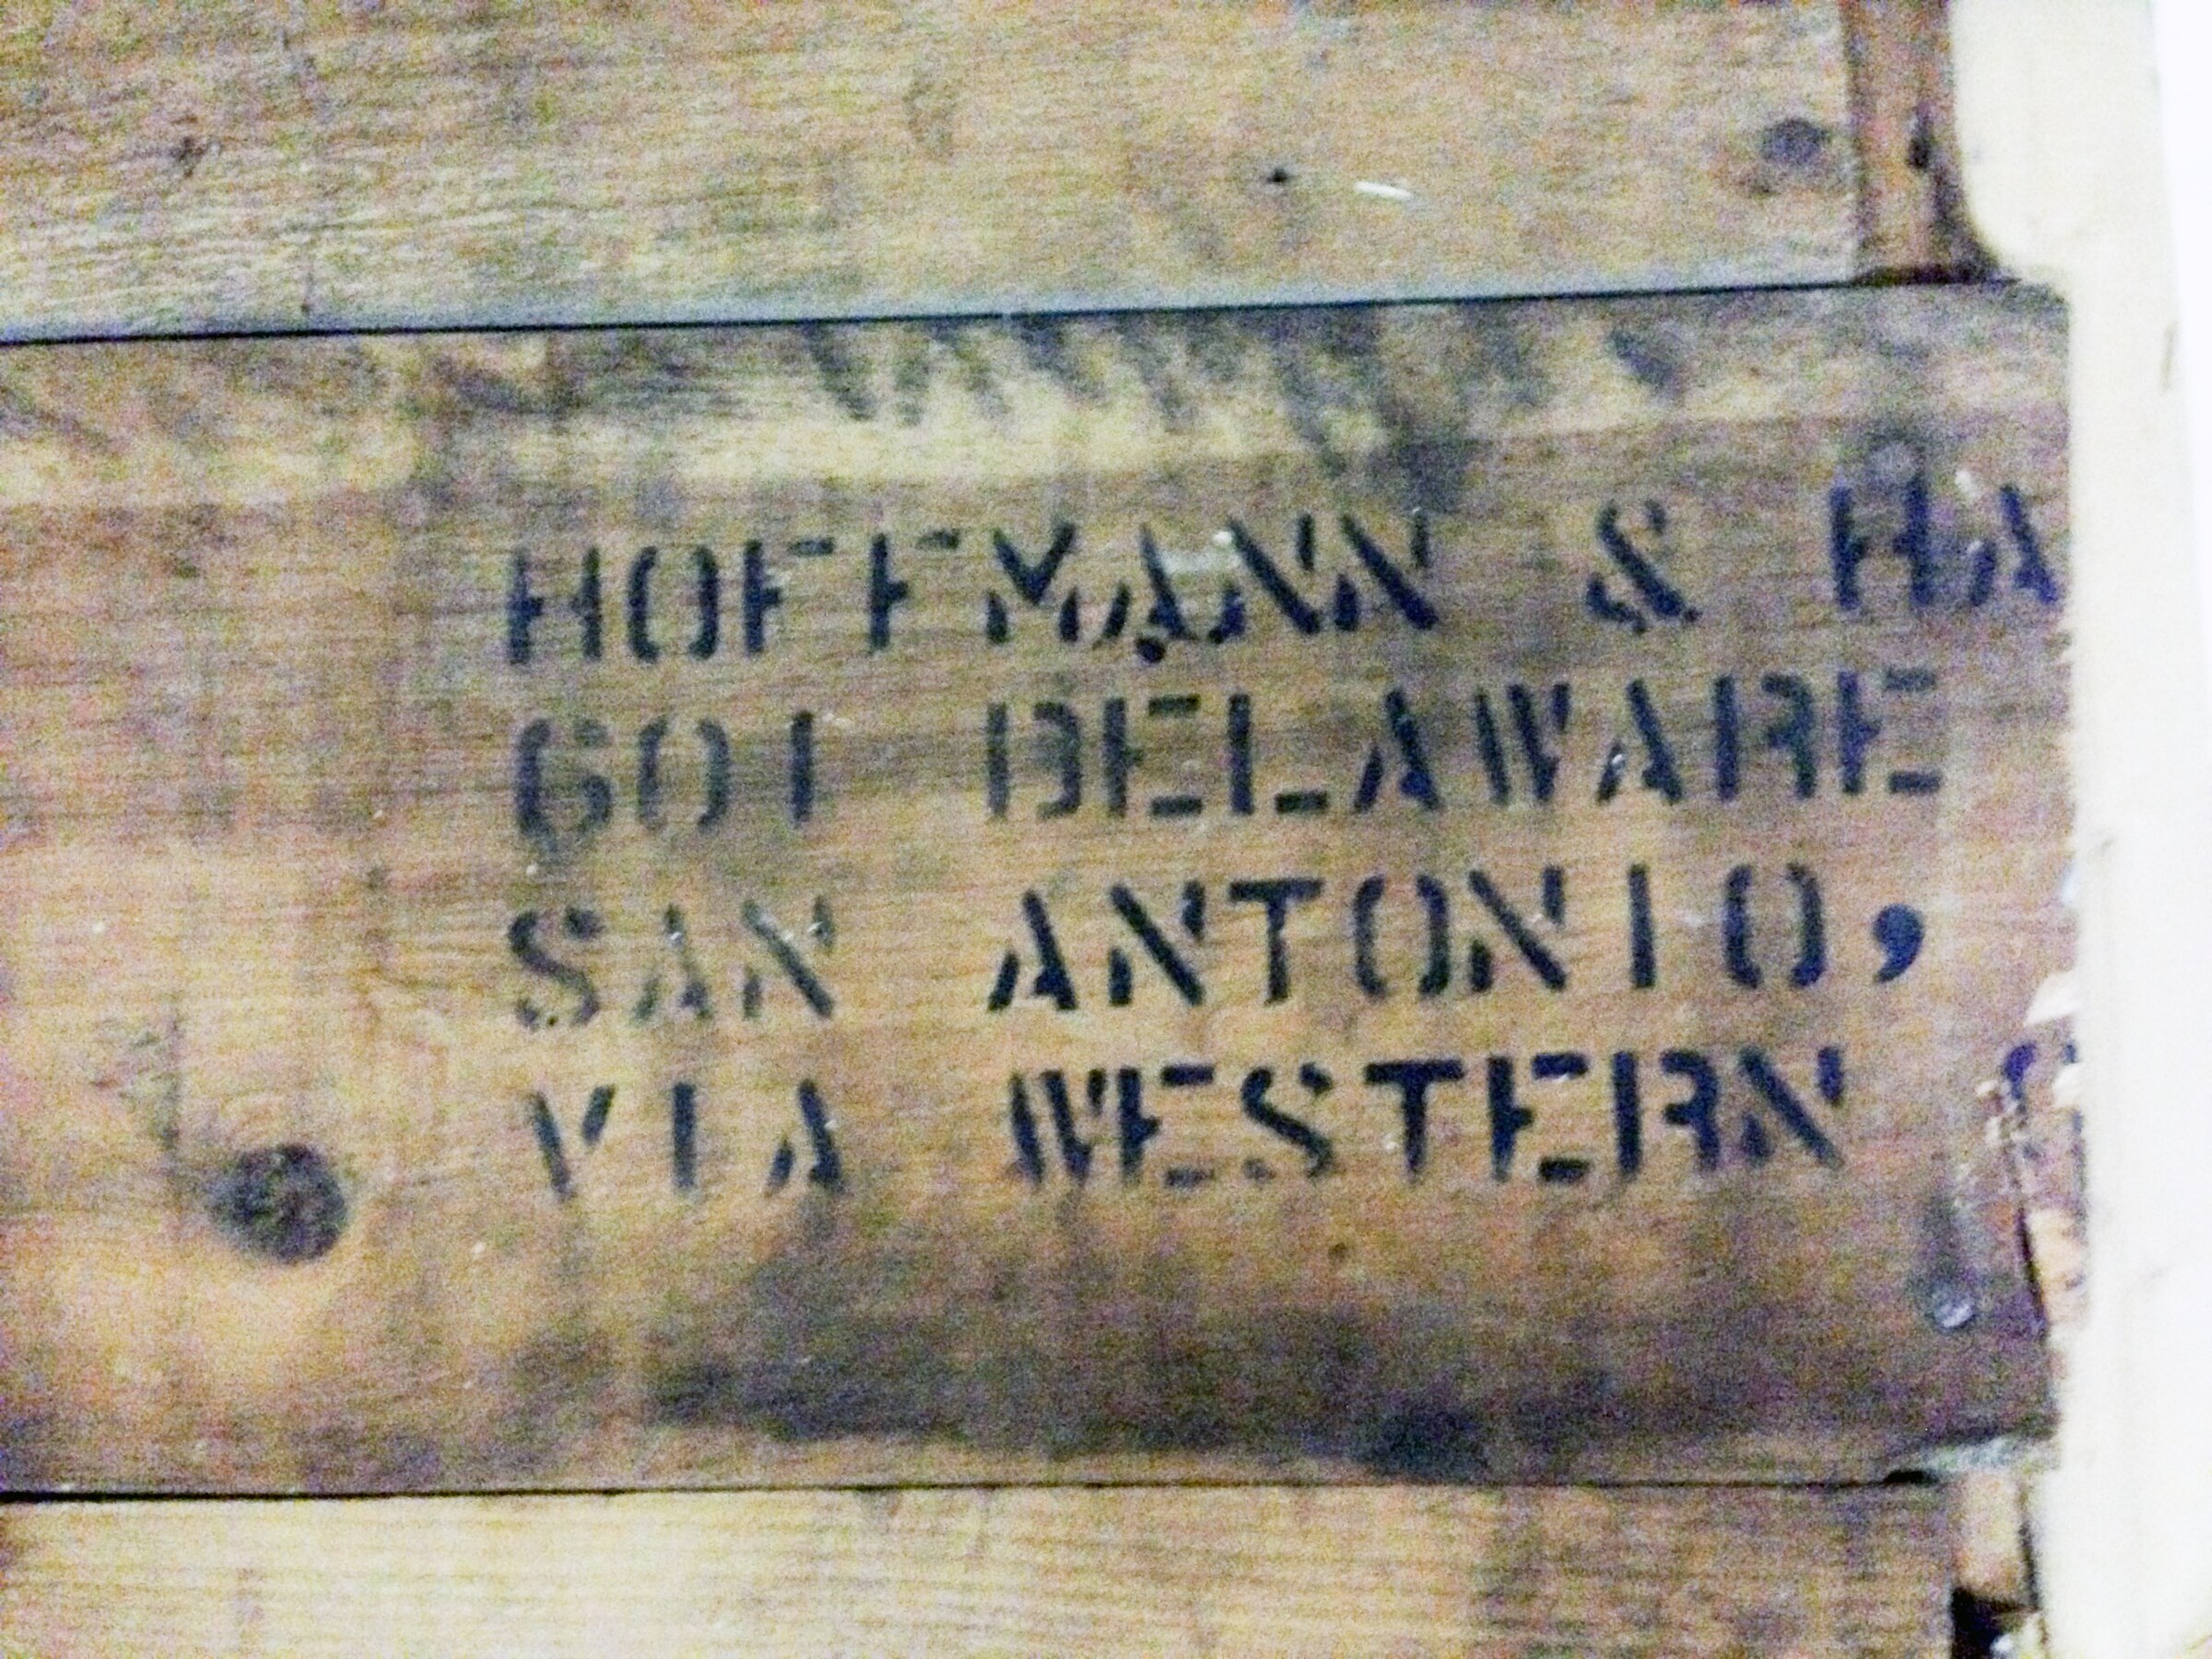 HOFFMANN & HA
601 DELAWARE
SAN ANTONIO,
VIA WESTERN